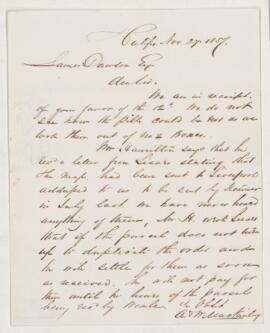 Nov 27. 1857.
James Dawson Esq
We are in receipt
of your favor of the 12th. We do not
see how the Bill could be met as we
took them out of no 2 Boxes.
Mr Hamilton says that he
recd a letter from Lucars stating that
the maps had been sent to Liverpool
addressed to us to be sent by Steamer
in July last We have never heard
anything of them, Mr H. wrote Lucars
that if the parcel does not turn
up to duplicate the order and
he will settle for them as soon
as received. He will not pay for
them until he hears of the parcel
being recd by